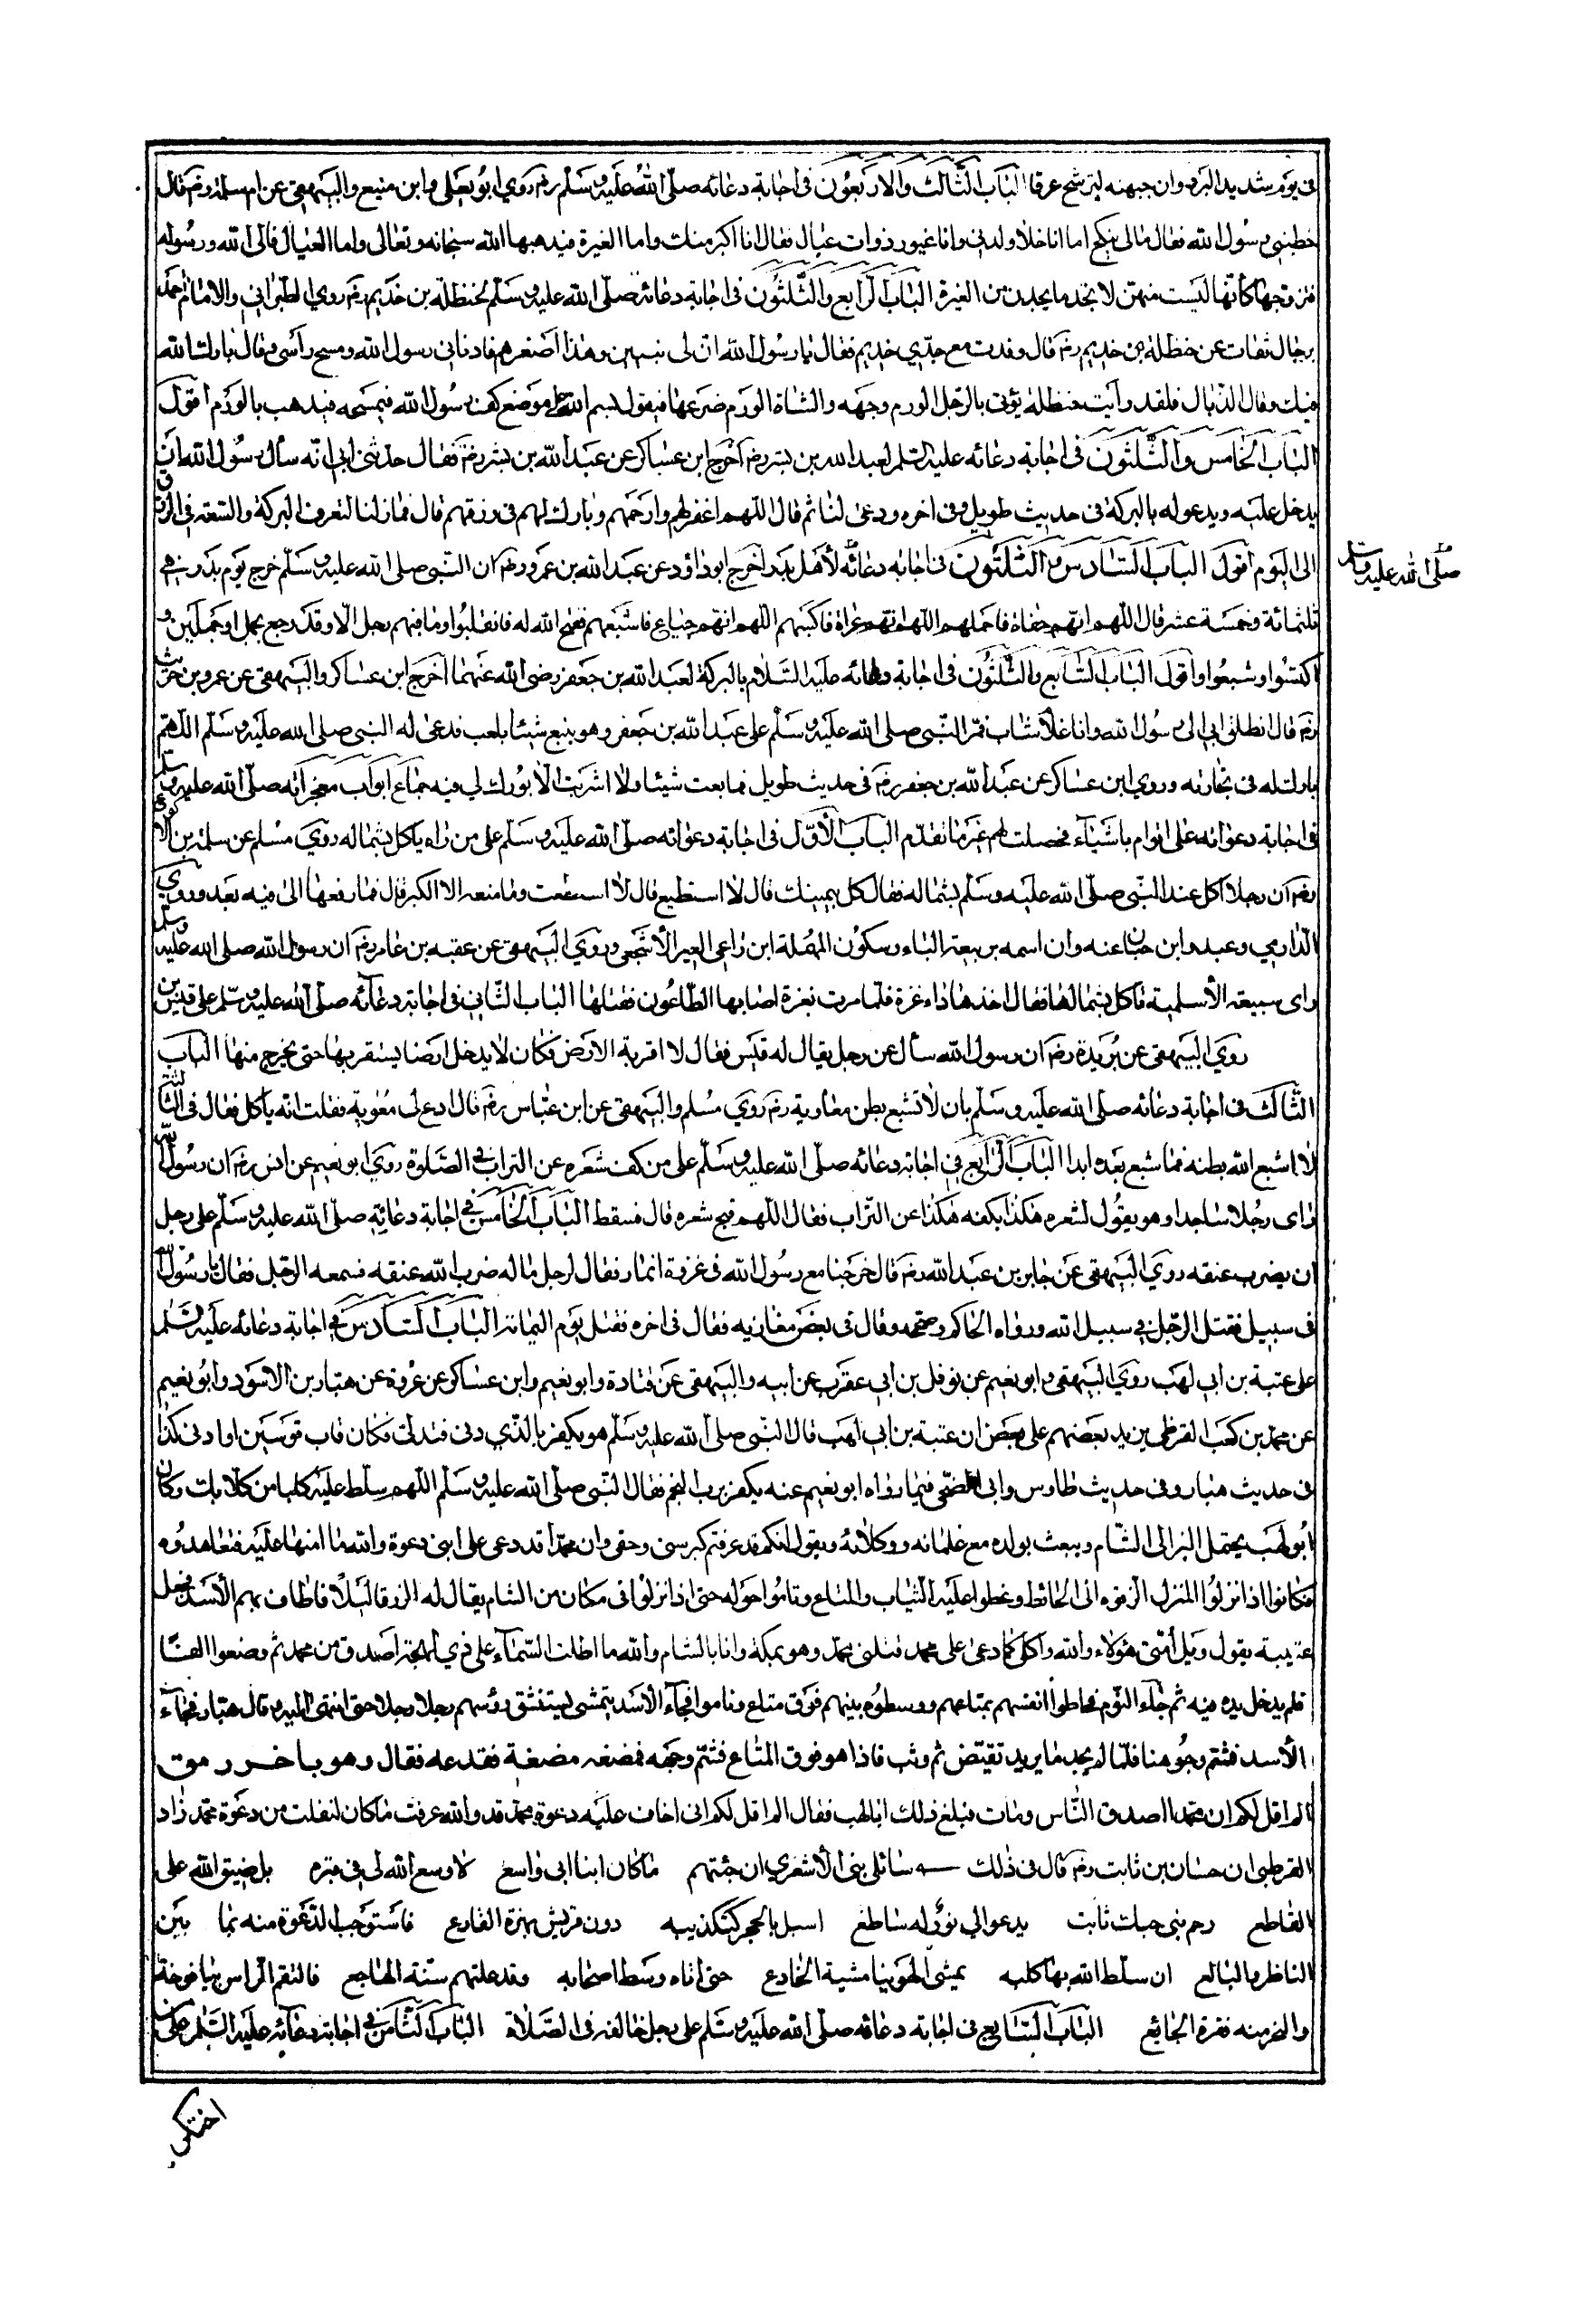 في يوم شديد البرد وان جبهته ليترشح عرقا الباب الثالث والاربعون في اجابة دعائه صلى الله عليه وسلم رض روي ابو يعلى وابن منيع والبيهقي عن ام سلمة رض قال
خطبني رسول الله فقال مالي ينكح اما انا خلا ولدني وانا غيور ذوات عيال فقال انا اكبر منك واما الغيرة فيذهبها الله سبحانه وتعالى واما العيال فالى الله ورسوله
فتزوجها كانها ليست منهن لا تجد ما يجدن من الغيرة الباب الرابع والثلثون في اجابة دعائه صلى الله عليه وسلم لحنظلة بن حذيم رض روي الطبراني والامام احمد
برجال ثقات عن حنظلة بن حذيم رض قال وفدت مع جدي حذيم فقال يا رسول الله ان لي بنين وهذا اصغرهم فادناني رسول الله ومسح راسي وقال بارك الله
فيك وقال الذيال فلقد رايت حنظلة يؤتى بالرجل الورم وجهه والشاة الورم ضرعها فيقول بسم الله على موضع كف رسول الله فيمسحه فيذهب بالورم اقول
الباب الخامس والثلثون في اجابة دعائه عليه السلم لعبد الله بن بشر رض اخرج ابن عساكر عن عبد الله بن بشر رض فقال حدثني ابي انه سال رسول الله ان
يدخل عليه ويدعو له بالبركة في حديث طويل وفي اخره ودعى لنا ثم قال اللهم اغفر لهم وارحمهم وبارك لهم في رزقهم قال فما زلنا لتعرف البركة والسعة في الرزق
الى اليوم اقول الباب السادس والثلثون في اجابة دعائه لاهل بدر اخرج ابو داود عن عبد الله بن عمرو رض ان النبي صلى الله عليه وسلم خرج يوم بدر في
صلى الله عليه وسلم
ثلثمائة وخمسة عشر قال اللهم انهم حفاة فاحملهم اللهم انهم عراة فاكسهم اللهم انهم جياع فاشبعهم ففتح الله له فانقلبوا وما فيهم رجل الا وقد رجع بجمل او جملين و
اكتسوا وشبعوا واقول الباب السابع والثلثون في اجابة دعائه عليه السلام بالبركة لعبد الله بن جعفر رضي الله عنهما اخرج ابن عساكر والبيهقي عن عمرو بن حريث
رض قال انطلق ابي الى رسول الله وانا غلام شاب فمر النبي صلى الله عليه وسلم على عبد الله بن جعفر وهو يبيع شيئا يلعب فدعى له النبي صلى الله عليه وسلم اللهم
بارك له في تجارته وروي ابن عساكر عن عبد الله بن جعفر رض في حديث طويل فما بعت شيئا ولا اشريت الا بورك لي فيه جماع ابواب معجزاته صلى الله عليه وسلم
في اجابة دعواته على اقوام باشياء فحصلت لهم غير ما تقدم الباب الاول في اجابة دعوته صلى الله عليه وسلم على من راه ياكل بشماله روي مسلم عن سلمة بن الاكوع
رض ان رجلا اكل عند النبي صلى الله عليه وسلم بشماله فقال كل بيمينك قال لا استطيع قال لا استطعت وما منعه الا الكبر قال فما رفعها الى فيه بعد وروي
الدارمي وعبد وابن حبان عنه وان اسمه بريعة الباء وسكون المهملة ابن راعي العير الاشجعي وروي البيهقي عن عقبه بن عامر رض ان رسول الله صلى الله عليه وسلم
راى سبيعة الاسلمية تاكل بشمالها فقال اخذها داء غزة فلما مرت بغزة اصابها الطاعون فقتلها الباب الثاني في اجابة دعائه صلى الله عليه وسلم على قيس بن
روي البيهقي عن بريدة رض ان رسول الله سال عن رجل يقال له قيس فقال لا اقربه الارض فكان لا يدخل ارضا يستقر بها حتى يخرج منها الباب
الثالث في اجابة دعائه صلى الله عليه وسلم بان لا تشبع بطن معاوية رض روي مسلم والبيهقي عن ابن عباس رض قال دع لي معوية فقلت انه ياكل فقال في الثالثة
لا اشبع الله بطنه فما شبع بعده ابدا الباب الرابع في اجابة دعائه صلى الله عليه وسلم على من كف شعره عن التراب في الصلوة روي ابو نعيم عن انس رض ان رسول الله
راى رجلا ساجدا وهو يقول لشعره هكذا بكفه هكذا عن التراب فقال اللهم قبح شعره قال فسقط الباب الخامس في اجابة دعائه صلى الله عليه وسلم على رجل
ان يضرب عنقه روي البيهقي عن جابر بن عبد الله رض قال خرجنا مع رسول الله في غزوة انمار فقال لرجل ماله ضرب الله عنقه فسمعه الرجل فقال يا رسول الله
في سبيل فقتل الرجل في سبيل الله ورواه الحاكم وصححه وقال في بعض مغازيه فقال في اخره فقتل يوم اليمامة الباب السادس في اجابة دعائه عليه السلم
على عتبة بن ابي لهب روي البيهقي وابو نعيم عن نوفل بن ابي عقرب عن ابيه والبيهقي عن قتادة وابو نعيم وابن عساكر عن عروة عن هبار بن الاسود وابو نعيم
عن محمد بن كعب القرظي يزيد بعضهم على بعض ان عتبة بن ابي لهب قال النبي صلى الله عليه وسلم هو يكفر بالذي دنى فتدلى فكان قاب قوسين او ادنى كذا
في حديث هبار وفي حديث طاوس وابي الضحى فيما رواه ابو نعيم عنه يكفر برب النجم فقال النبي صلى الله عليه وسلم اللهم سلط عليه كلبا من كلابك وكان
ابو لهب يحتمل البز الى الشام ويبعث بولده مع غلمانه ووكلائه ويقول انكم قد عرفتم كبر سني وحقي وان محمدا قد دعى على ابني دعوة والله ما امنها عليه فتعاهدوه
فكانوا اذا نزلوا المنزل الزقوه الى الحائط وغطوا عليه الثياب والمتاع وناموا حوله حتى اذا نزلوا في مكان من الشام يقال له الزرقا ليلا فاطاف بهم الاسد فجعل
عتيبة يقول ويل امتي هؤلاء والله واكلي كما دعى علي محمد قتلني محمد وهو بمكة وانا بالشام والله ما اظلت السماء على ذي لهجة اصدق من محمد ثم وضعوا العشا
فلم يدخل يده فيه ثم جاء النوم فحاطوا انفسهم بمتاعهم ووسطوه بينهم فوق متاع وناموا فجاء الاسد يتمشى يستنشق رؤسهم رجلا رجلا حتى انتهى اليه قال هبار فجاء
الاسد فشم وجوهنا فلما لم يجد ما يريد تقبض ثم وثب فاذا هو فوق المتاع فشم وجهه فمضغه مضغة فقدعه فقال وهو باخر رمق
الم اقل لكم ان محمدا اصدق الناس ومات فبلغ ذلك ابا لهب فقال الم اقل لكم اني اخاف عليه دعوة محمد قد والله عرفت ما كان لنفلت من دعوة محمد زاد
القرطبي ان حسان بن ثابت رض قال في ذلك سائلي بني الاشعري ان جئتهم ما كان ابنا ابي واسع لا وسع الله لي في قبره بل ضيق الله على
القاطع رحم بني جدك ثابت يدعو الي نور له ساطع اسبل بالحجر كتكذيبه دون قريش نهزة القادع فاستوجب الدعوة منه بما بين
الناظر والسامع ان سلط الله بها كلبه يمشي الهوينا مشية الخادع حتى اتاه وسط اصحابه وقد علتهم سنة الهاجع فالتقم الراس بيافوخه
والنحر منه فغرة الجائع الباب السابع في اجابة دعائه صلى الله عليه وسلم على رجل خالفه في الصلاة الباب الثامن في اجابة دعائه عليه السلم على من
احتكر